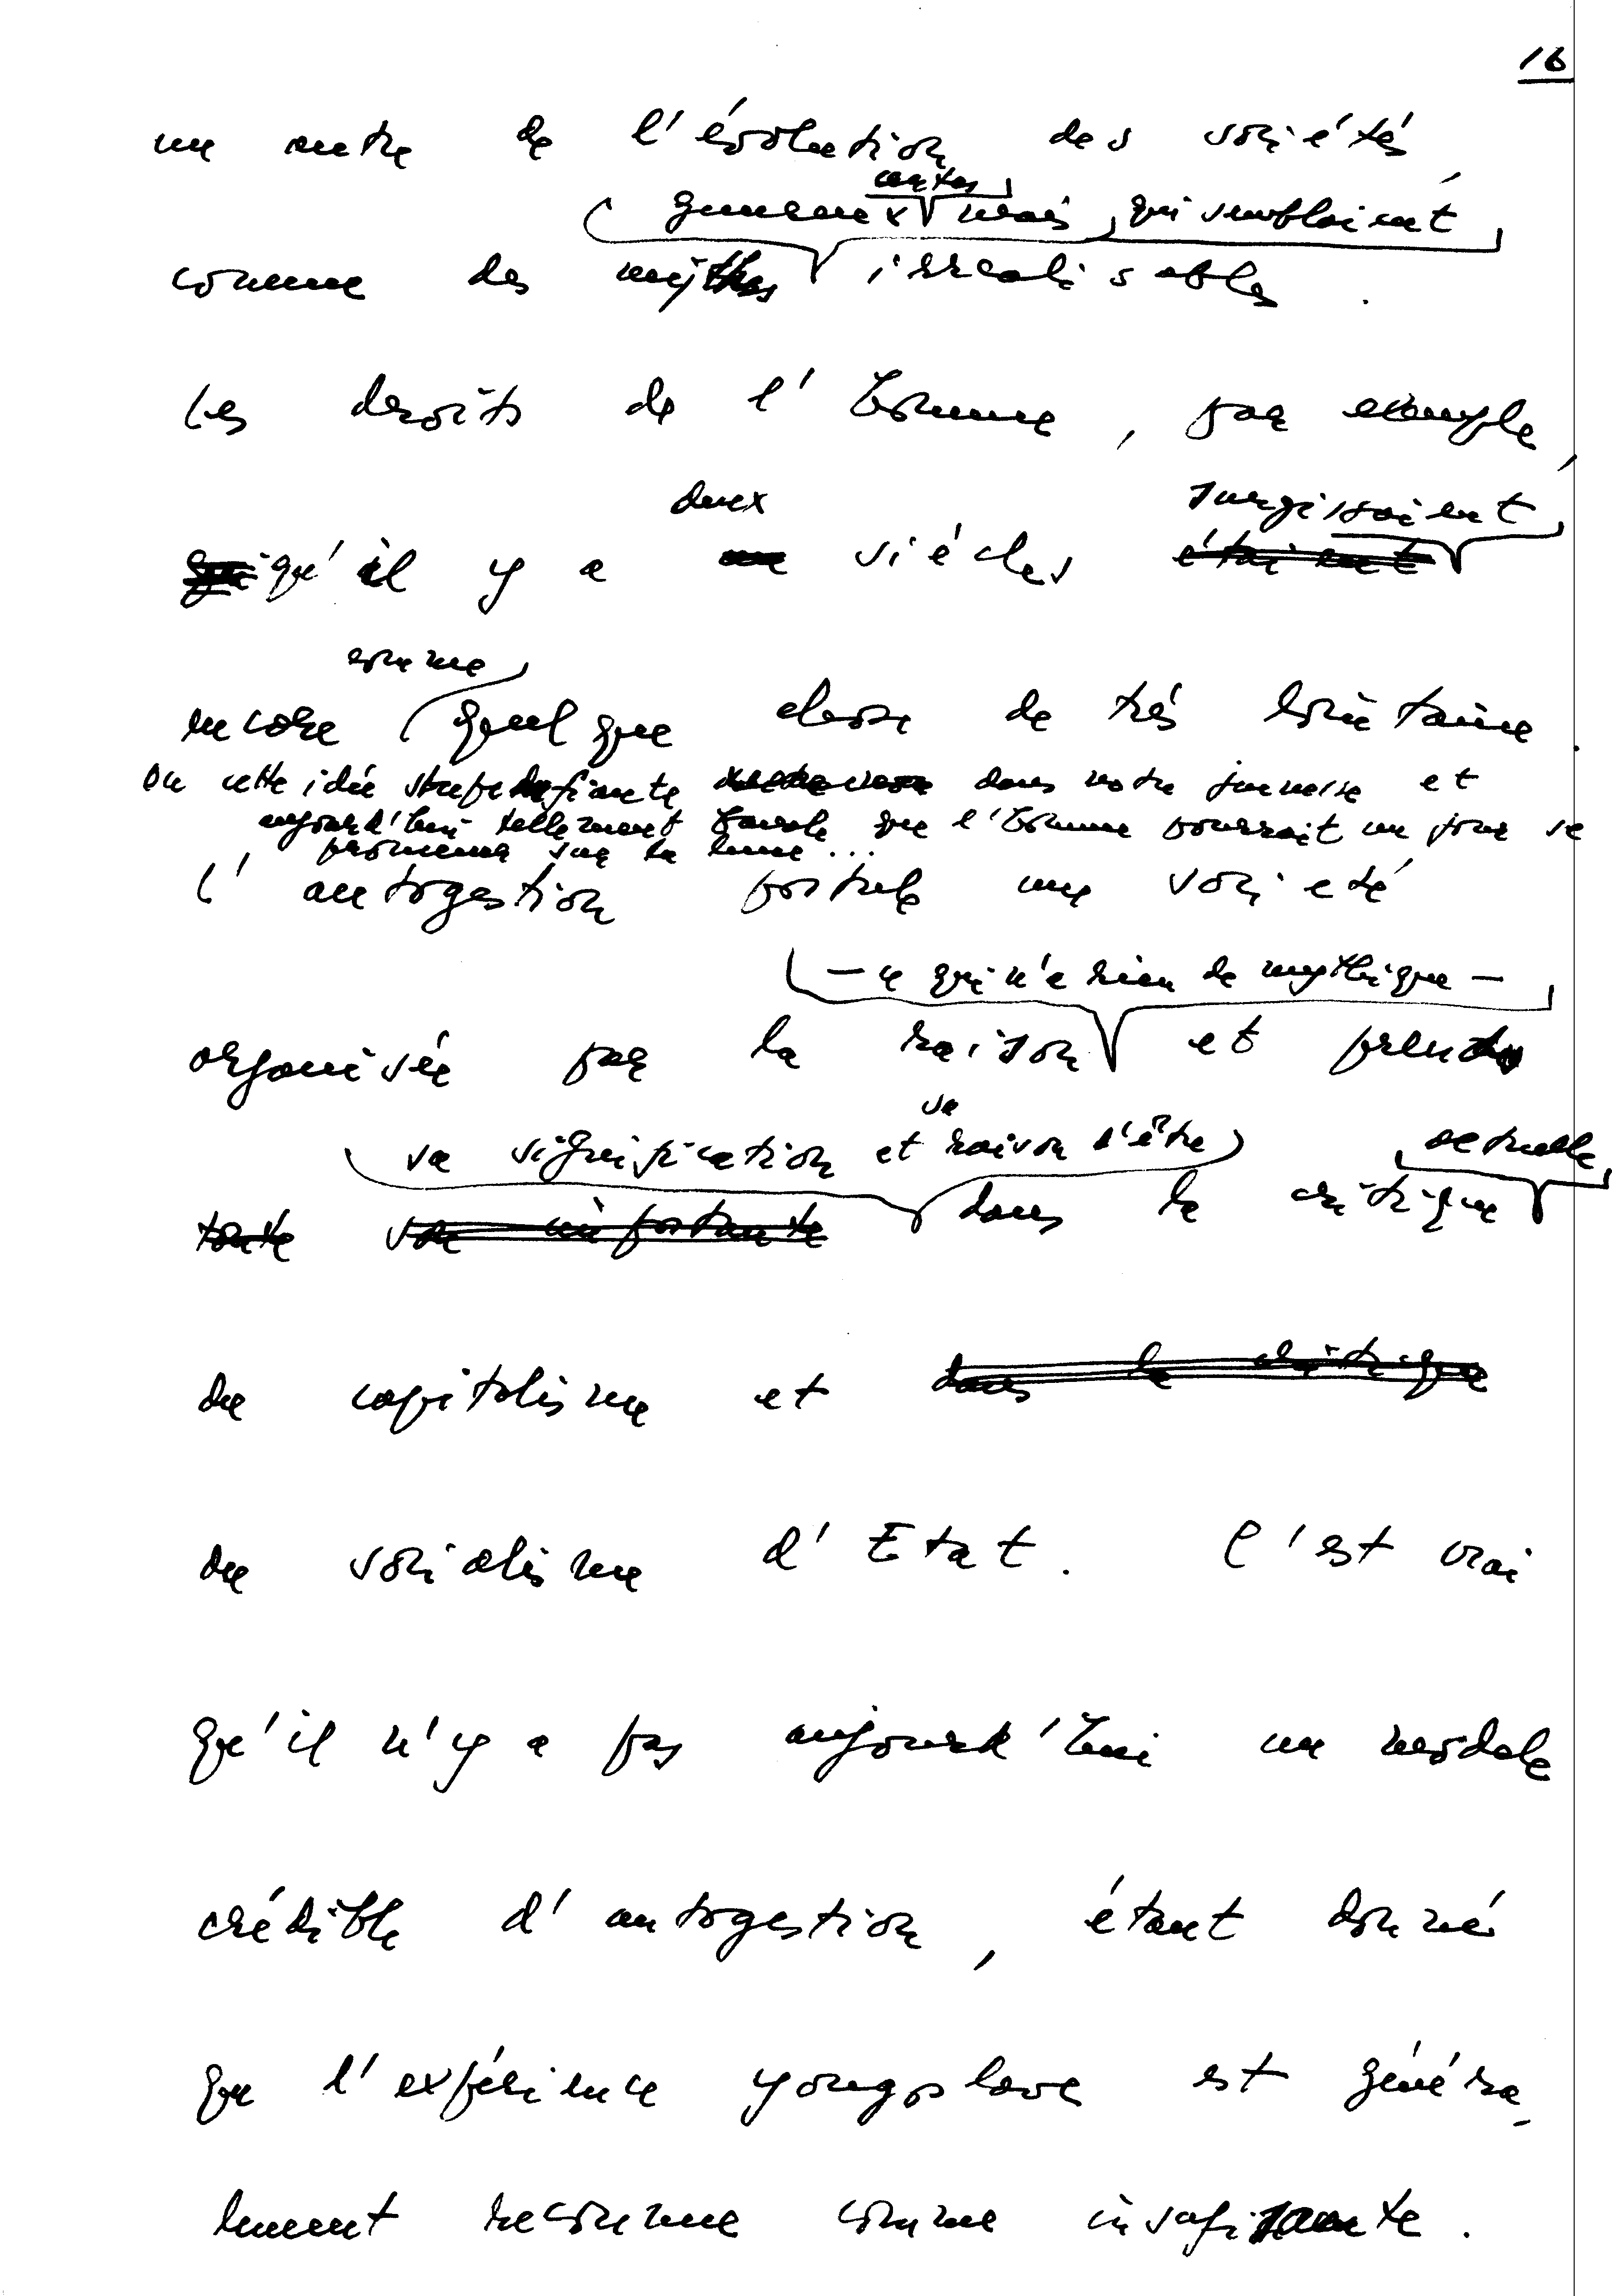 16
un autre de l'évolution des sociétés,
certes
généreux mais, qui semblaient
comme des mythes irréalisables.
Les droits de l'homme, par exemple,
deux surgissaient
qui qu'il y a un siècles étaient
comme
encore quelque chose de très lointaine.
Ou cette idée stupédéfiante dans notre jeunesse et
aujourd'hui tellement banale que l'homme pourrait un jour se
promener sur la lune...
L'autogestion postule une société
— ce qui n'a rien de mythique —
organisée par la raison et prend
sa
sa signification et raison d'être actuelle
toute son importante dans la critique
du capitalisme et dans la critique
du socialisme d'Etat. C'est vrai
qu'il n'y a pas aujourd'hui un modèle
crédible d'autogestion, étant donné
que l'expérience yougoslave est généra-
lement reconnue comme insufisante.